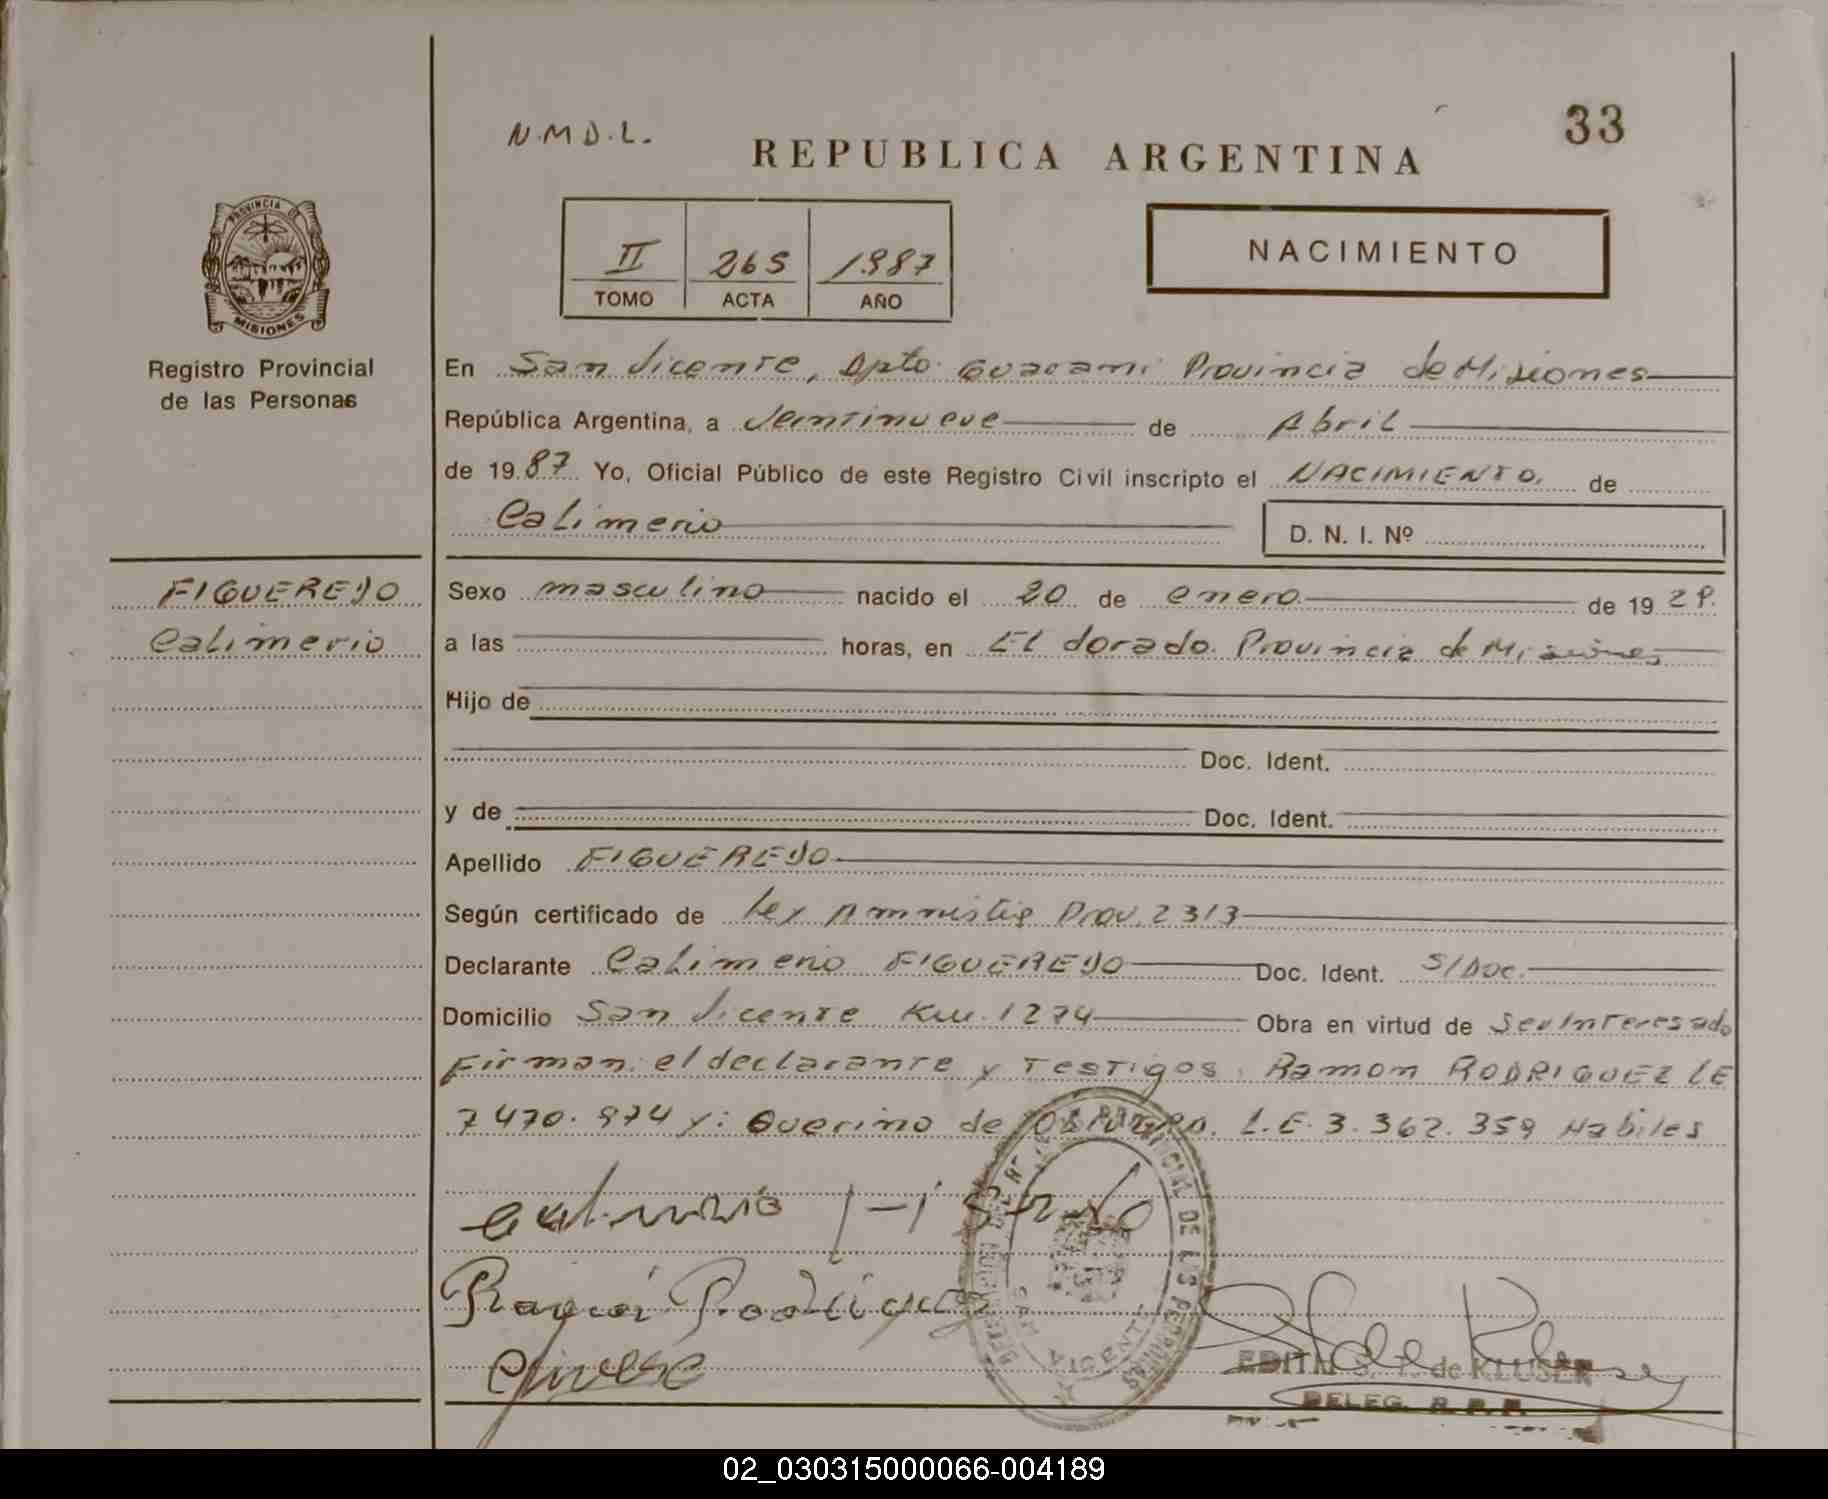 N.M.D.L.
33
REPUBLICA ARGENTINA
PROVINCIA DE
MISIONES
Registro Provincial
de las Personas
II 265 1987
TOMO ACTA AÑO
NACIMIENTO
En San Vicente, Dpto. Guarani Provincia de Misiones
República Argentina, a Veintinueve de Abril
de 1987 Yo, Oficial Público de este Registro Civil inscripto el NACIMIENTO. de
Calimerio
D. N. I. Nº
FIGUEREDO
Calimerio
Sexo masculino nacido el 20 de enero de 19 29.
a las horas, en El dorado. Provincia de Misiones
Hijo de
Doc. Ident.
y de Doc. Ident.
Apellido FIGUEREDO
Según certificado de Ley Amnistia Prov. 2313
Declarante Calimerio FIGUEREDO Doc. Ident. S/Doc.
Domicilio San Vicente Km. 1274 Obra en virtud de Ser Interesado
Firman: el declarante y Testigos: Ramon RODRIGUEZ LE
7470.974 y: Querino de L.E. 3.362.359 Habiles
Ramon Rodriguez
EDITH de KLUSER
DELEG. R. P. P.
02_030315000066-004189